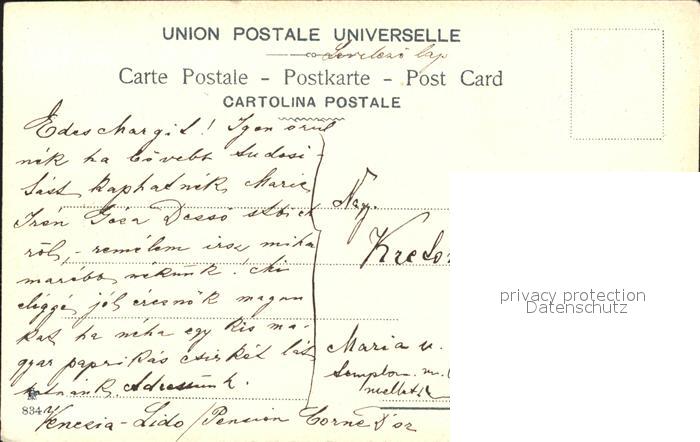 UNION POSTALE UNIVERSELLE
Levelező lap
Carte Postale - Postkarte - Post Card
CARTOLINA POSTALE
Edes Margit! Igen örül
nék ha bővebb tudosi-
tást kaphatnék Marie
Irén Géza Dessö stbiek
ről, - remélem irsz miha
marább nékünk! Mi
eléggé jól éreznők magun
kat ha néha egy kis ma-
gyar paprikás csirkét lát
hatnánk. Adressünk.
Venezia - Lido / Pension Corne D'or
Nagy.
Maria u.
Templom m.
mellett
834
privacy protection
Datenschutz